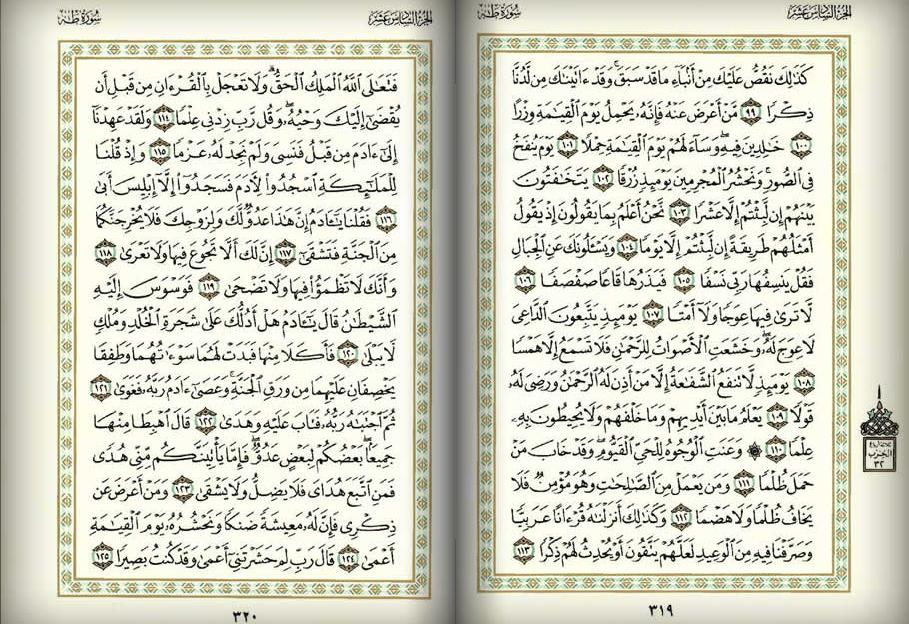 الجزء السادس عشر
سورة طه
كَذَٰلِكَ نَقُصُّ عَلَيْكَ مِنْ أَنۢبَآءِ مَا قَدْ سَبَقَ ۚ وَقَدْ ءَاتَيْنَٰكَ مِن لَّدُنَّا
ذِكْرًا ٩٩ مَّنْ أَعْرَضَ عَنْهُ فَإِنَّهُۥ يَحْمِلُ يَوْمَ ٱلْقِيَٰمَةِ وِزْرًا
١٠٠ خَٰلِدِينَ فِيهِ ۖ وَسَآءَ لَهُمْ يَوْمَ ٱلْقِيَٰمَةِ حِمْلًا ١٠١ يَوْمَ يُنفَخُ
فِى ٱلصُّورِ ۚ وَنَحْشُرُ ٱلْمُجْرِمِينَ يَوْمَئِذٍ زُرْقًا ١٠٢ يَتَخَٰفَتُونَ
بَيْنَهُمْ إِن لَّبِثْتُمْ إِلَّا عَشْرًا ١٠٣ نَّحْنُ أَعْلَمُ بِمَا يَقُولُونَ إِذْ يَقُولُ
أَمْثَلُهُمْ طَرِيقَةً إِن لَّبِثْتُمْ إِلَّا يَوْمًا ١٠٤ وَيَسْـَٔلُونَكَ عَنِ ٱلْجِبَالِ
فَقُلْ يَنسِفُهَا رَبِّى نَسْفًا ١٠٥ فَيَذَرُهَا قَاعًا صَفْصَفًا ١٠٦
لَّا تَرَىٰ فِيهَا عِوَجًا وَلَآ أَمْتًا ١٠٧ يَوْمَئِذٍ يَتَّبِعُونَ ٱلدَّاعِىَ
لَا عِوَجَ لَهُۥ ۖ وَخَشَعَتِ ٱلْأَصْوَاتُ لِلرَّحْمَٰنِ فَلَا تَسْمَعُ إِلَّا هَمْسًا
١٠٨ يَوْمَئِذٍ لَّا تَنفَعُ ٱلشَّفَٰعَةُ إِلَّا مَنْ أَذِنَ لَهُ ٱلرَّحْمَٰنُ وَرَضِىَ لَهُۥ
قَوْلًا ١٠٩ يَعْلَمُ مَا بَيْنَ أَيْدِيهِمْ وَمَا خَلْفَهُمْ وَلَا يُحِيطُونَ بِهِۦ
عِلْمًا ١١٠ ۞ وَعَنَتِ ٱلْوُجُوهُ لِلْحَىِّ ٱلْقَيُّومِ ۖ وَقَدْ خَابَ مَنْ
حَمَلَ ظُلْمًا ١١١ وَمَن يَعْمَلْ مِنَ ٱلصَّٰلِحَٰتِ وَهُوَ مُؤْمِنٌ فَلَا
يَخَافُ ظُلْمًا وَلَا هَضْمًا ١١٢ وَكَذَٰلِكَ أَنزَلْنَٰهُ قُرْءَانًا عَرَبِيًّا
وَصَرَّفْنَا فِيهِ مِنَ ٱلْوَعِيدِ لَعَلَّهُمْ يَتَّقُونَ أَوْ يُحْدِثُ لَهُمْ ذِكْرًا ١١٣
الحزب
٣٢
٣١٩
الجزء السادس عشر
سورة طه
فَتَعَٰلَى ٱللَّهُ ٱلْمَلِكُ ٱلْحَقُّ ۗ وَلَا تَعْجَلْ بِٱلْقُرْءَانِ مِن قَبْلِ أَن
يُقْضَىٰٓ إِلَيْكَ وَحْيُهُۥ ۖ وَقُل رَّبِّ زِدْنِى عِلْمًا ١١٤ وَلَقَدْ عَهِدْنَآ
إِلَىٰٓ ءَادَمَ مِن قَبْلُ فَنَسِىَ وَلَمْ نَجِدْ لَهُۥ عَزْمًا ١١٥ وَإِذْ قُلْنَا
لِلْمَلَٰٓئِكَةِ ٱسْجُدُوا۟ لِـَٔادَمَ فَسَجَدُوٓا۟ إِلَّآ إِبْلِيسَ أَبَىٰ
١١٦ فَقُلْنَا يَٰٓـَٔادَمُ إِنَّ هَٰذَا عَدُوٌّ لَّكَ وَلِزَوْجِكَ فَلَا يُخْرِجَنَّكُمَا
مِنَ ٱلْجَنَّةِ فَتَشْقَىٰٓ ١١٧ إِنَّ لَكَ أَلَّا تَجُوعَ فِيهَا وَلَا تَعْرَىٰ ١١٨
وَأَنَّكَ لَا تَظْمَؤُا۟ فِيهَا وَلَا تَضْحَىٰ ١١٩ فَوَسْوَسَ إِلَيْهِ
ٱلشَّيْطَٰنُ قَالَ يَٰٓـَٔادَمُ هَلْ أَدُلُّكَ عَلَىٰ شَجَرَةِ ٱلْخُلْدِ وَمُلْكٍ
لَّا يَبْلَىٰ ١٢٠ فَأَكَلَا مِنْهَا فَبَدَتْ لَهُمَا سَوْءَٰتُهُمَا وَطَفِقَا
يَخْصِفَانِ عَلَيْهِمَا مِن وَرَقِ ٱلْجَنَّةِ ۚ وَعَصَىٰٓ ءَادَمُ رَبَّهُۥ فَغَوَىٰ ١٢١
ثُمَّ ٱجْتَبَٰهُ رَبُّهُۥ فَتَابَ عَلَيْهِ وَهَدَىٰ ١٢٢ قَالَ ٱهْبِطَا مِنْهَا
جَمِيعًۢا ۖ بَعْضُكُمْ لِبَعْضٍ عَدُوٌّ ۖ فَإِمَّا يَأْتِيَنَّكُم مِّنِّى هُدًى
فَمَنِ ٱتَّبَعَ هُدَاىَ فَلَا يَضِلُّ وَلَا يَشْقَىٰ ١٢٣ وَمَنْ أَعْرَضَ عَن
ذِكْرِى فَإِنَّ لَهُۥ مَعِيشَةً ضَنكًا وَنَحْشُرُهُۥ يَوْمَ ٱلْقِيَٰمَةِ
أَعْمَىٰ ١٢٤ قَالَ رَبِّ لِمَ حَشَرْتَنِىٓ أَعْمَىٰ وَقَدْ كُنتُ بَصِيرًا ١٢٥
٣٢٠